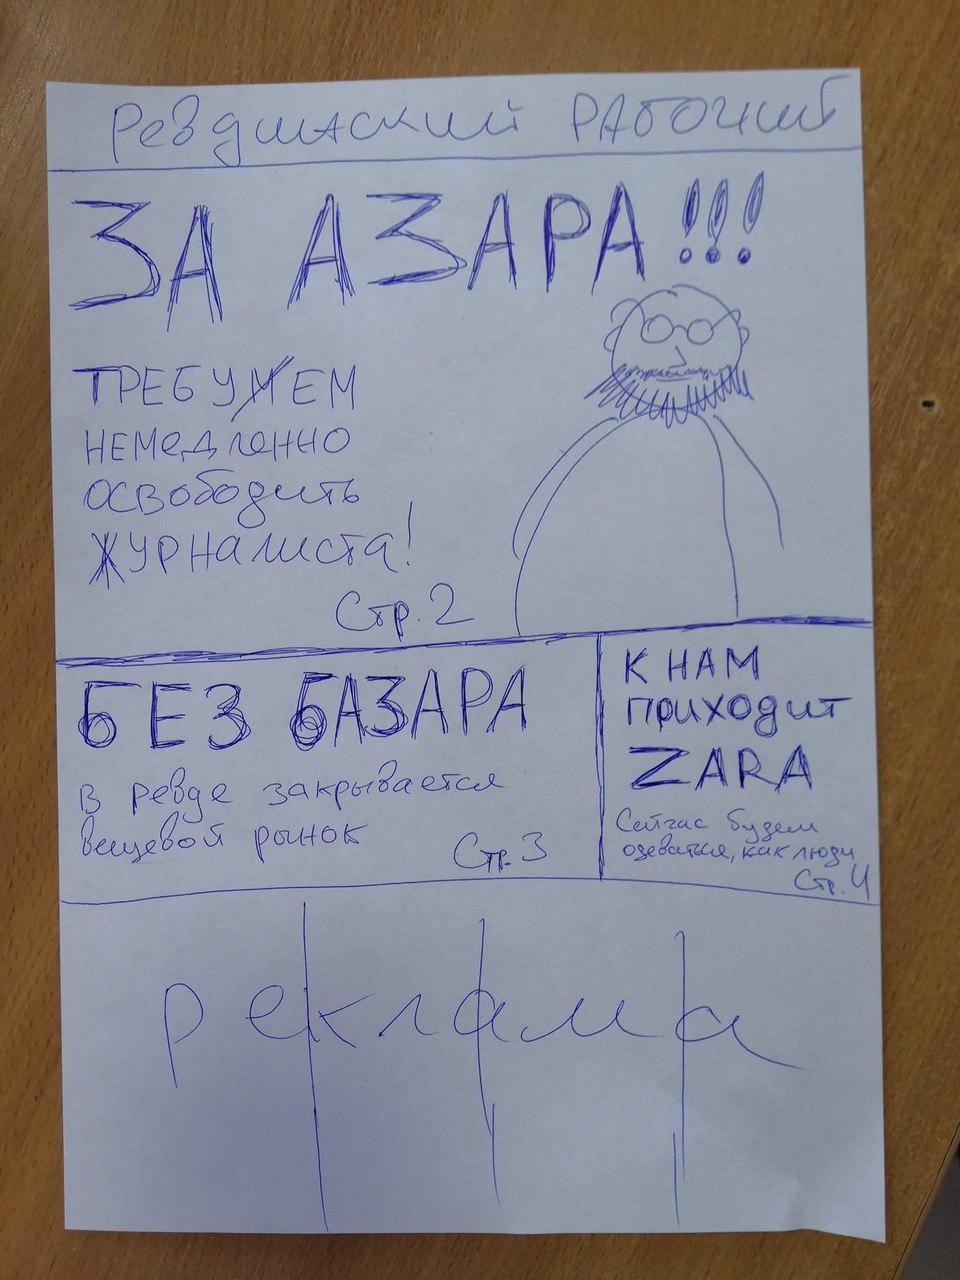 Ревдинский РАБОЧИЙ
ЗА АЗАРА!!!
ТРЕБУЕМ
немедленно
освободить
журналиста!
Стр. 2
БЕЗ БАЗАРА
в ревде закрывается
вещевой рынок
Стр. 3
К НАМ
приходит
ZARA
Сейчас будем
одеваться, как люди
Стр. 4
реклама